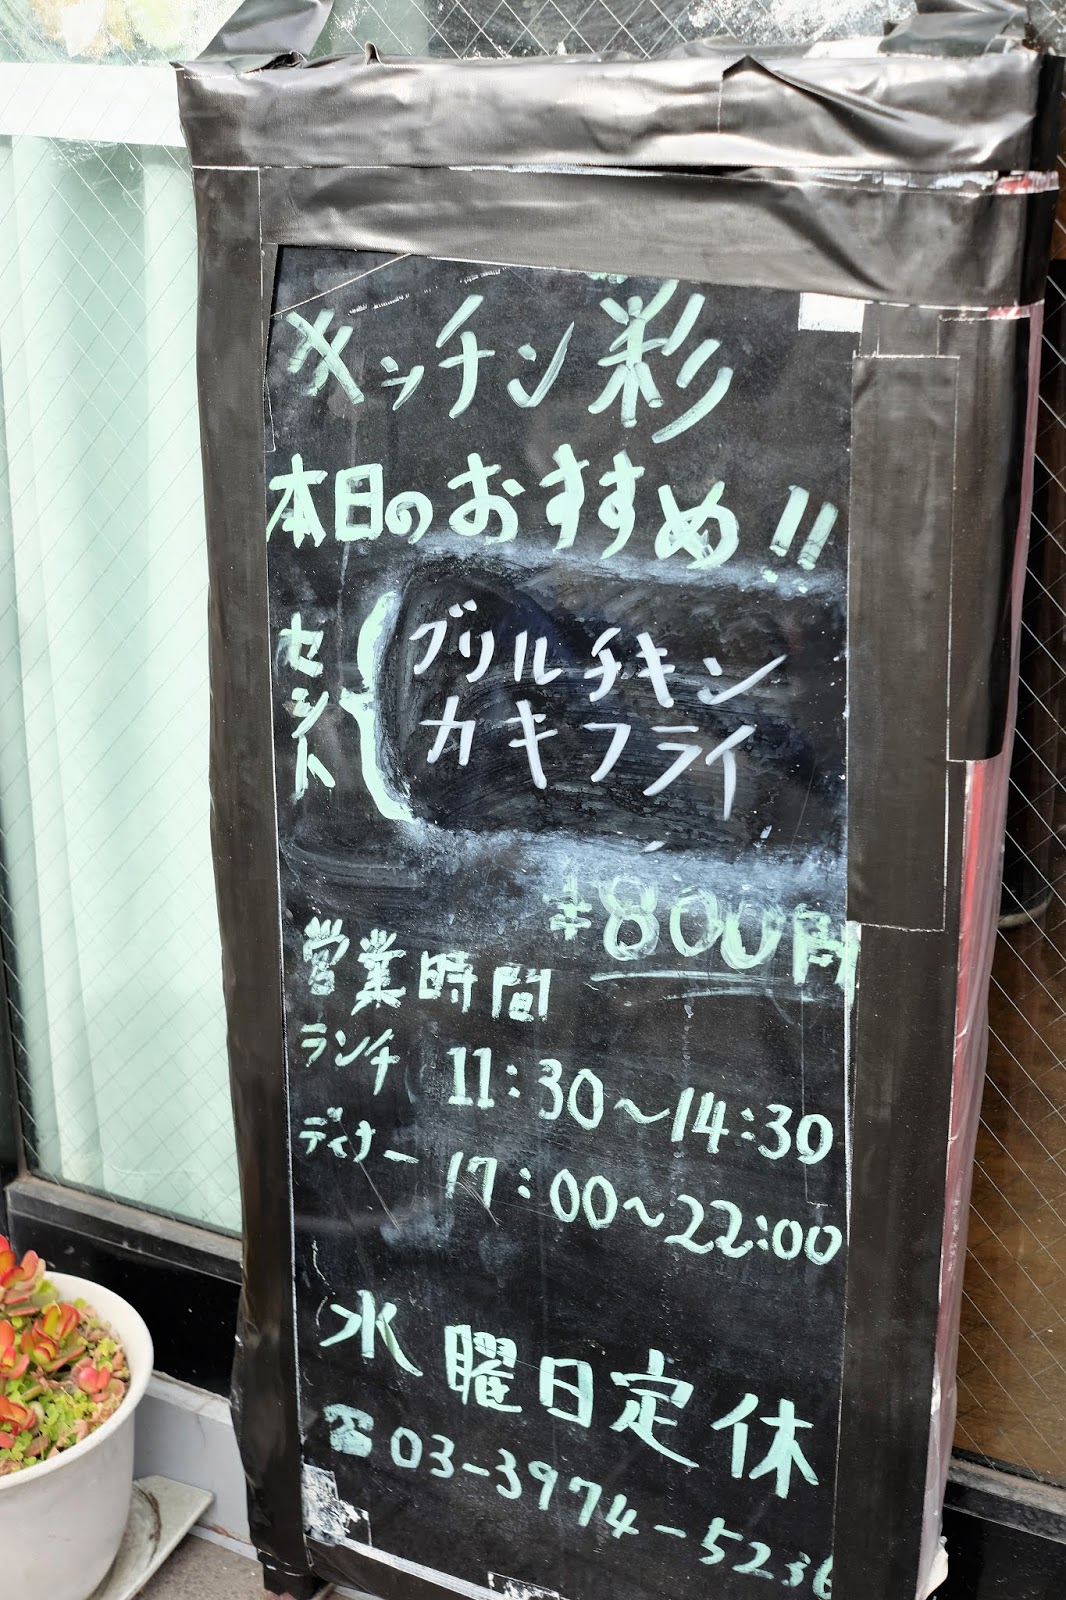 キッチン彩
本日のおすすめ!!
セット
グリルチキン
カキフライ
¥800円
営業時間
ランチ 11:30~14:30
ディナー 17:00~22:00
水曜日定休
☎03-3974-5236